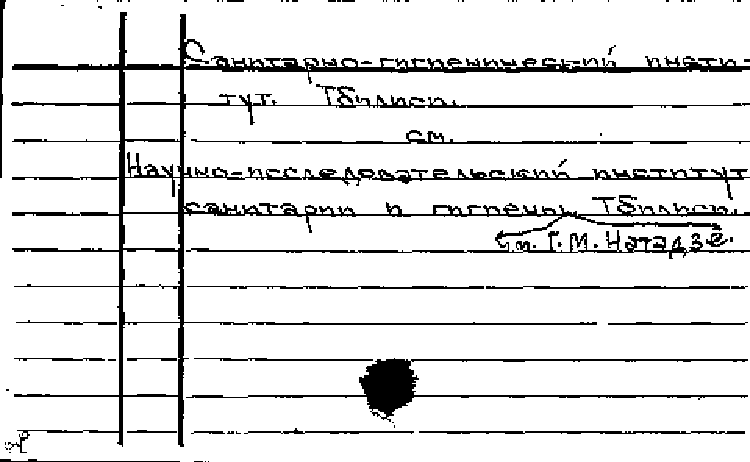 Санитарно-гигиенический инсти-
тут. Тбилиси.
см.
Научно-исследовательский институт
санитарии и гигиены Тбилиси.
им. Г. М. Натадзе.